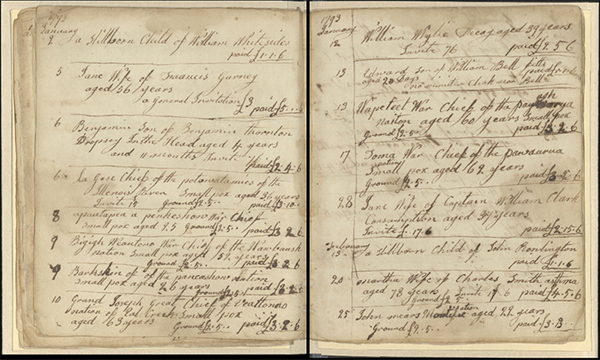 1793
January
2 a Stillborn Child of William Whitesides
paid £1-1-6
5 Jane Wife of Francis Gurney
aged 56 years
a General Invitation £3 paid £5
6 Benjamin Son of Benjamin Thornton
Dropsey In the Head aged 4 years
and months Invite
paid £2.4.6
6 La Gese Chief of the potowatamies of the
Illenois River Small pox aged 36 years
Invite 18 Ground £2.5.. paid £3.10
8 apautapea a penkeshaw Chief
Small pox aged 25 Ground £2.5.. paid £3.2.6
9 Bigigh Weautono War Chief of the Wawbaush
nation Small pox aged 52 years
Ground £2.5.. paid £3.2.6
9 Barkskin of the pancashous nation
small pox aged 26 years
Ground £2.5.. paid £3.2.6
10 Grand Joseph Great Chief of
nation of Red Creek Small pox
aged 63 years Ground £2.5.. paid £3.2.6
1793
January
12 William Wylie Decay aged 59 years
Invite 76 paid £2.5.6
13 Edward Son of William Bell fitts
aged 20 Days paid
no minister Chas Bell
13 Wapeteet War Chief of the
Nation aged 60 years Small pox
Ground £2.5.. paid £3.2.6
17 Toma War Chief of the pancauria
nation
Small pox aged 62 years
Ground £2.5.. paid £3.2.6
28 Jane Wife of Captain William Clark
Consumption aged years
Invite £.17.6 paid £2.15.6
February
15 a Stillborn Child of John Ronington
paid £.1.6
20 martha Wife of Charles Smith asthma
aged 78 years Invite 17 6 paid £4.5.6
Ground £2.5
25 John mears aged 22 years
Ground £2.5.. paid £3.3..